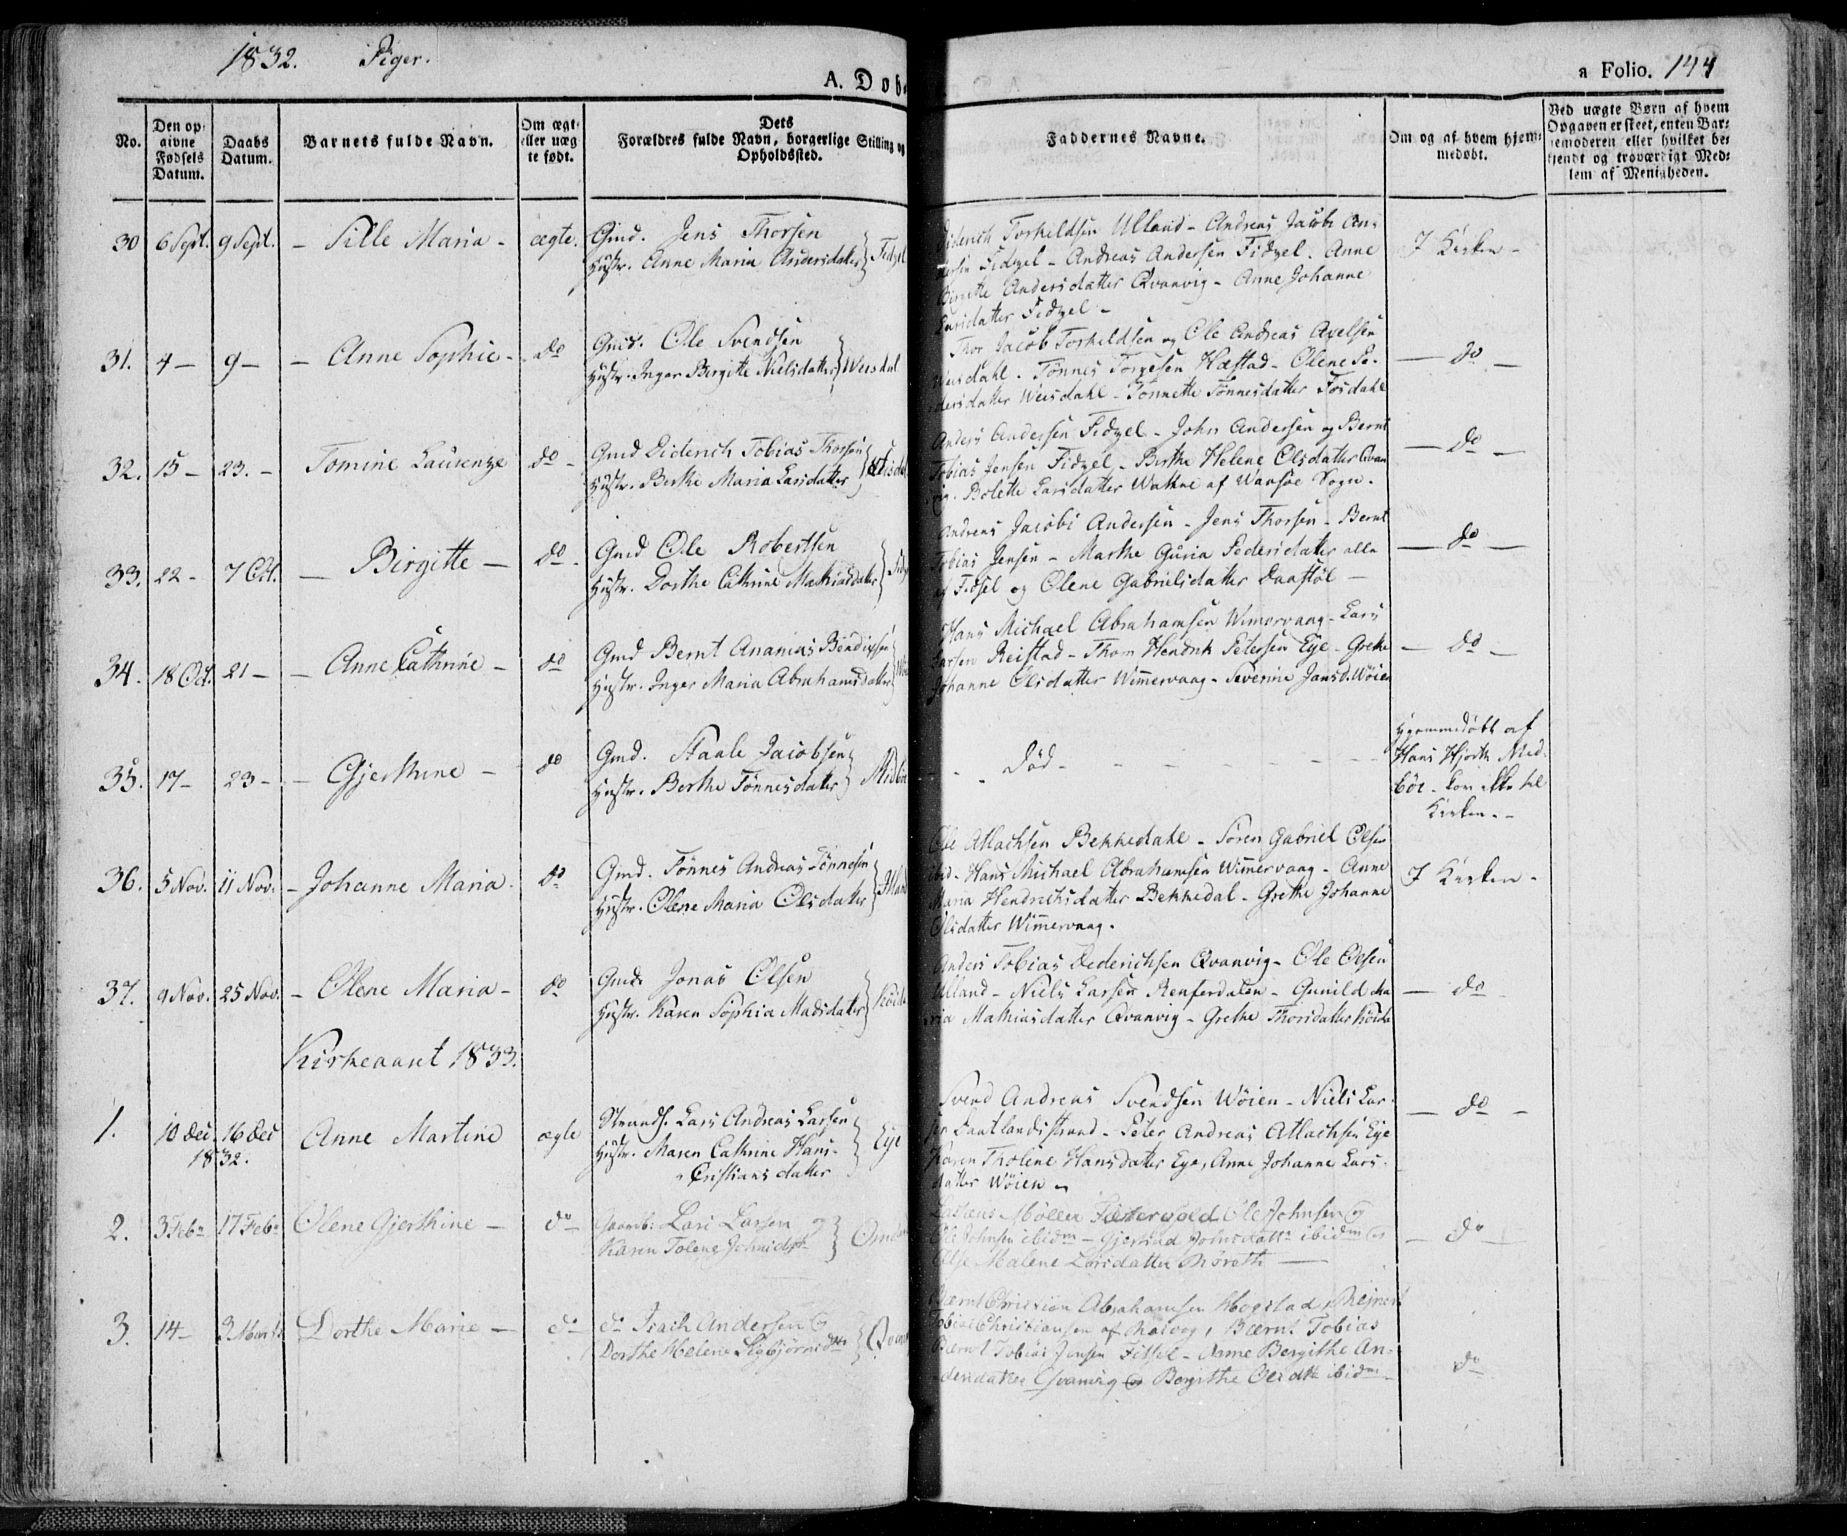 1832. Piger.
A. Døb
a Folio. 144
No.
Den op-
givne
Fødsels
Datum.
Daabs
Datum.
Barnets fulde Navn.
Om ægt-
eller uæg
te født.
Dets
Forældres fulde Navn, borgerlige Stilling og
Opholdssted.
Faddernes Navne.
Om og af hvem hjem-
medøbt.
Ved uægte Børn af hvem
Opgaven er skeet, enten Bar-
nemoderen eller hvilket be-
kjendt og troværdigt Med-
lem af Menigheden.
30 6 Sept. 9 Sept. - Sille Maria - ægte.
Gmd. Jens Thorsen
Hustr. Anne Maria Andersdatter } Fidzel
Diderich Torkildsen Ulland - Andreas Jacobi An-
dersen Fidzel - Andreas Andersen Fidzel. Anne
Birgitte Andersdatter Qvanvig - Anne Johanne
Larsdatter Fidzel -
I Kirken -
31. 4 - 9 - - Anne Sophie - do
Gmd. Ole Svendsen
Hustr. Inger Birgitte Nielsdatter } Weisdal
Thor Jacob Torkildsen og Ole Andreas Axelsen
Weisdahl. Tønnes Torgesen Hæstad - Olene Pe-
dersdatter Weisdahl - Tonnette Tønnesdatter Fosdahl
- do -
32. 15 - 23. - Tomine Laurentze do -
Gmd Diderich Tobias Thorsen
Hustr. Berthe Maria Larsdatter
Anders Andersen Fidzel - John Andersen og Bernt
Tobias Jensen Fidzel - Berthe Helene Olsdatter Qvan
vig. Bolette Larsdatter Wathne af Wansøe Sogn.
- do -
33. 22 - 7 Oct. - Birgitte - do -
Gmd Ole Robertsen
Hustr. Dorthe Cathrine Mathiasdatter
Andreas Jacobi Andersen - Jens Thorsen - Bernt
Tobias Jensen - Marthe Guria Pedersdatter alle
af Fidsel og Olene Gabrielsdatter Daastøl -
- do -
34. 18 Oct. 21 - - Anne Cathrine - do
Gmd Bernt Ananias Bendixsen
Hustr. Inger Maria Abrahamsdatter
Hans Michael Abrahamsen Wimervaag - Lars
Larsen Reistad - Thom Hendrik Petersen Eye - Grethe
Johanne Olsdatter Wimmervaag - Severine Jansd. Wøien
- do -
35. 17 - 23 - - Gjerthine - do
Gmd. Staale Jacobsen
Hustr. Berthe Tønnesdatter
- - Død - - - - - -
Hjemmedøbt af
Hans Hjorth Med-
bøe - kom ikke til
Kirken. -
36. 5 Nov. 11 Nov. - Johanne Maria. do
Gmd. Tønnes Andreas Tønnesen
Hustr. Olene Maria Olsdatter
Ole Atlachsen Bekkedahl - Søren Gabriel Olsen
ibid - Hans Michael Abrahamsen Wimmervaag - Anne
Maria Hendrichsdatter Bekkedal - Grethe Johanne
Olsdatter Wimmervaag.
I Kirken -
37. 9 Nov. 25 Nov. - Olene Maria - do
Gmd. Jonas Olsen
Hustr. Karen Sophia Madsdatter
Anders Tobias Dederichsen Qvanvig - Ole Olsen
Ulland - Niels Larsen Renferdalen - Gunild Ma
ria Mathiasdatter Qvanvig - Grethe Thorsdatter
- do -
Kirkeaaret 1833.
1. 10 Dec. 16 Dec
1832.
Anne Martine ægte
Strands. Lars Andreas Larsen
Hustr. Maren Cathrine Hans-
Cristiansdatter } Eye
Svend Andreas Svendsen Wøien - Niels Lar-
sen Sautlandsstrand - Peter Andreas Atlachsen Eye
Karen Tholene Hansdatter Eye, Anne Johanne Lars-
datter Wøien -
- do -
2. 3 Febr 17 Febr Olene Gjerthine - do
Gaardb: Lars Larsen og
Karen Tolene Johnsdtr }
Ole Johnsen og
Ole Johnsen ibidm - Gjertrud Johnsdattr ibidm og
Else Malene Larsdatter -
- do -
3. 14 - 3 Marts Dorthe Marie - do
do Isach Andersen og
Dorthe Helene Sigbjørnsdtr
Bærnt Christian Abrahamsen Høgstad, Rejnert
Tobias Christiansen af, Bærnt Tobias
Bærnt Tobias Jensen Fissel - Anne Bergithe An-
dersdatter Qvanvig og Bergithe Olsdtr ibidm -
do